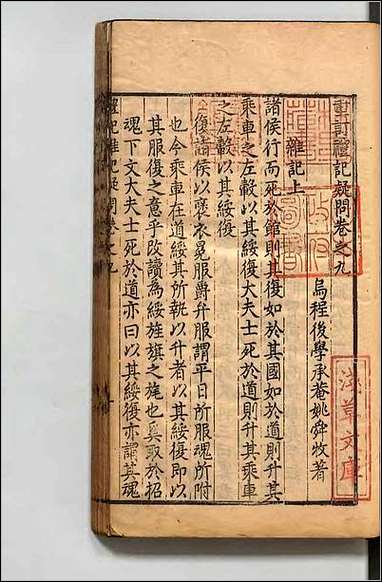 重訂禮記疑問卷之九
烏程後學承菴姚舜牧著
雜記上
諸侯行而死於館則其復如於其國如於道則升其
乘車之左轂以其綏復大夫士死於道則升其乘車
之左轂以其綏復
復諸侯以襃衣冕服爵弁服謂平日所服魂所附
也今乘車在道綏其所執以升者以其綏復即以
其服復之意乎改讀為緌旌旗之旄也奚取於招
魂下文大夫士死於道亦曰以其綏復亦謂其魂
淺草文庫